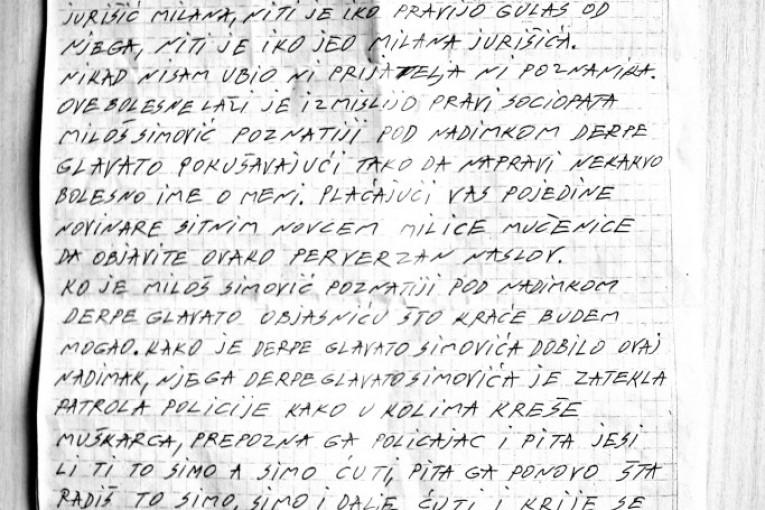 JURIŠIĆ MILANA, NITI JE IKO PRAVIJO GULAŠ OD
NJEGA, NITI JE IKO JEO MILANA JURIŠIĆA.
NIKAD NISAM UBIO NI PRIJATELJA NI POZNANIKA.
OVE BOLESNE LAŽI JE IZMISLIJO PRAVI SOCIOPATA
MILOŠ SIMOVIĆ POZNATIJI POD NADIMKOM DERPE
GLAVATO POKUŠAVAJUĆI TAKO DA NAPRAVI NEKAKVO
BOLESNO IME O MENI. PLAĆAJUĆI VAS POJEDINE
NOVINARE SITNIM NOVCEM MILICE MUČENICE
DA OBJAVITE OVAKO PERVERZAN NASLOV.
KO JE MILOŠ SIMOVIĆ POZNATIJI POD NADIMKOM
DERPE GLAVATO OBJASNIĆU ŠTO KRAĆE BUDEM
MOGAO. KAKO JE DERPE GLAVATO SIMOVIĆA DOBILO OVAJ
NADIMAK, NJEGA DERPE GLAVATO SIMOVIĆA JE ZATEKLA
PATROLA POLICIJE KAKO U KOLIMA KREŠE
MUŠKARCA, PREPOZNA GA POLICAJAC I PITA JESI
LI TI TO SIMO A SIMO ĆUTI, PITA GA PONOVO ŠTA
RADIŠ TO SIMO, SIMO I DALJE ĆUTI I KRIJE SE